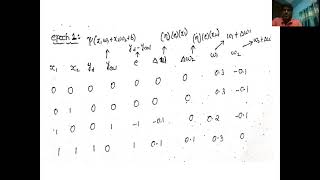 epoch 1: ψ(x₁w₁+x₂w₂+b) (η)(e)(x₁) (η)(e)(x₂) w₁+Δw₁
yd-yout w₂+Δw₂
x₁ x₂ yd yout e Δw₁ Δw₂ w₁ w₂
0 0 0 0 0 0 0 0.3 -0.1
0 1 0 0 0 0 0 0.3 -0.1
1 0 0 1 -1 -0.1 0 0.2 -0.1
1 1 1 0 1 0.1 0.1 0.3 0